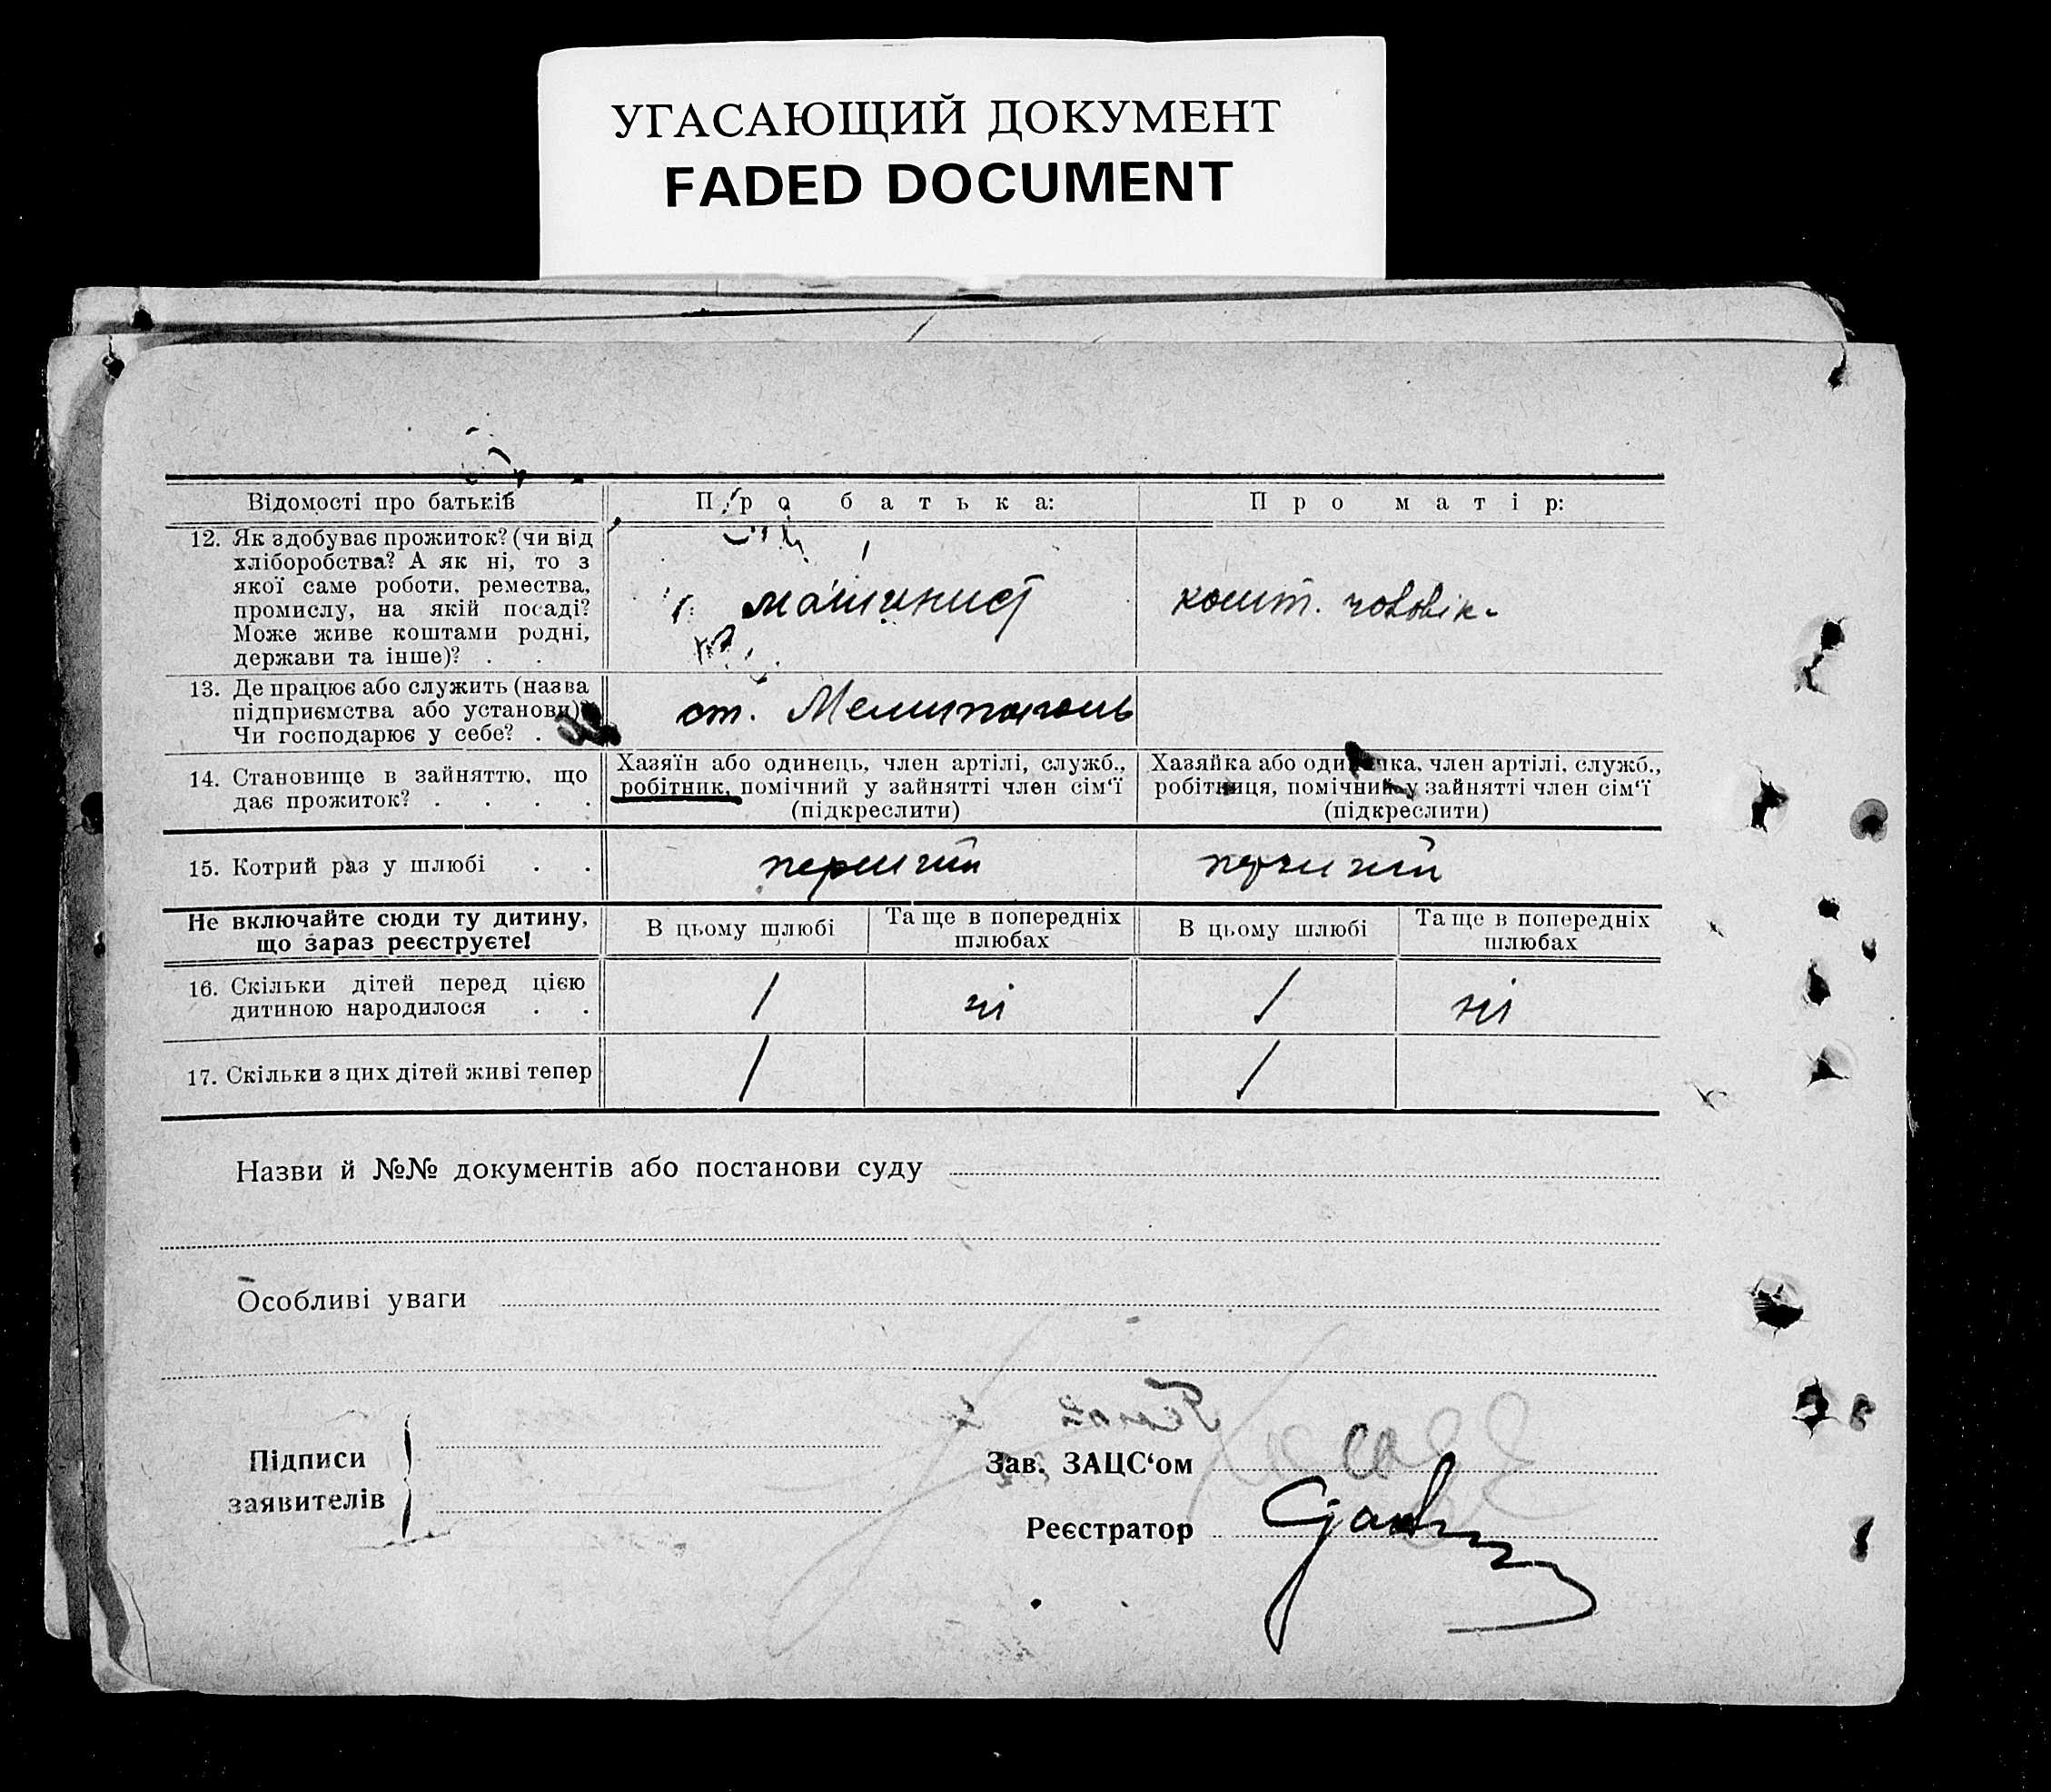 УГАСАЮЩИЙ ДОКУМЕНТ
FADED DOCUMENT
Відомості про батьків
Про батька:
Про матір:
12. Як здобуває прожиток? (чи від
хліборобства? А як ні, то з
якої саме роботи, ремества,
промислу, на якій посаді?
Може живе коштами родні,
держави та інше)? . .
машинист
кошт. чоловік.
13. Де працює або служить (назва
підприємства або установи)?
Чи господарює у себе? .
ст. Мелитополь
14. Становище в зайняттю, що
дає прожиток? . . . .
Хазяїн або одинець, член артілі, служб.,
робітник, помічний у зайнятті член сім‘ї
(підкреслити)
Хазяйка або одиначка, член артілі, служб.,
робітниця, помічний у зайнятті член сім‘ї
(підкреслити)
15. Котрий раз у шлюбі . .
перший
перший
Не включайте сюди ту дитину,
що зараз реєструєте!
В цьому шлюбі
Та ще в попередніх
шлюбах
В цьому шлюбі
Та ще в попередніх
шлюбах
16. Скільки дітей перед цією
дитиною народилося . .
1
ні
1
ні
17. Скільки з цих дітей живі тепер
1
1
Назви й №№ документів або постанови суду
Особливі уваги
Підписи
заявителів
Зав. ЗАЦС‘ом
Реєстратор